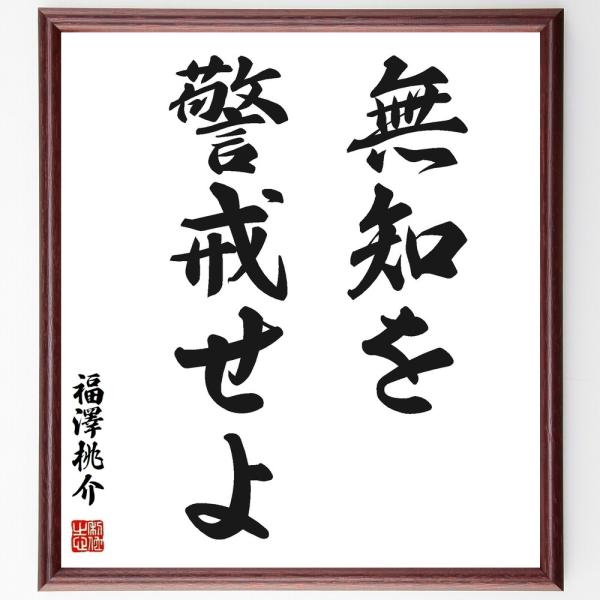 無知を
警戒せよ
福澤桃介